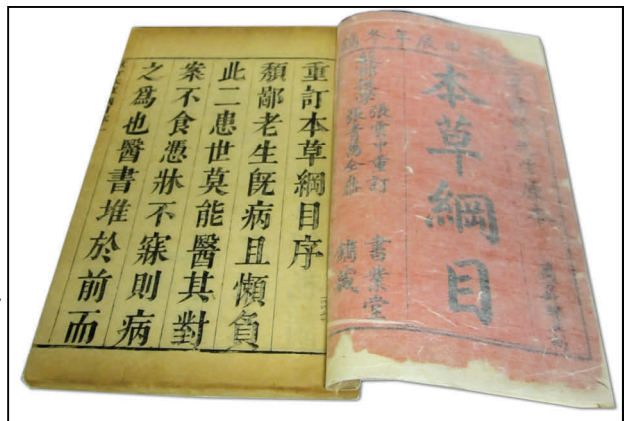 辰年冬
本草綱目
張雲中重訂
書業堂
鐫藏
重訂本草綱目序
頽鄙老生旣病且懶負
此二患世莫能醫其對
案不食憑牀不寐則病
之爲也醫書堆於前而